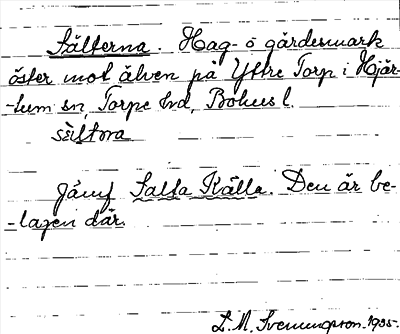 Sälterna. Hag- o gärdesmark
öster mot älven på Yttre Torp i Hjär-
-tum sn, Torpe hd, Bohus l.
sæltɒra
Jämf Salta Källa. Den är be-
-lagen där.
L. M. Svenungson. 1935.